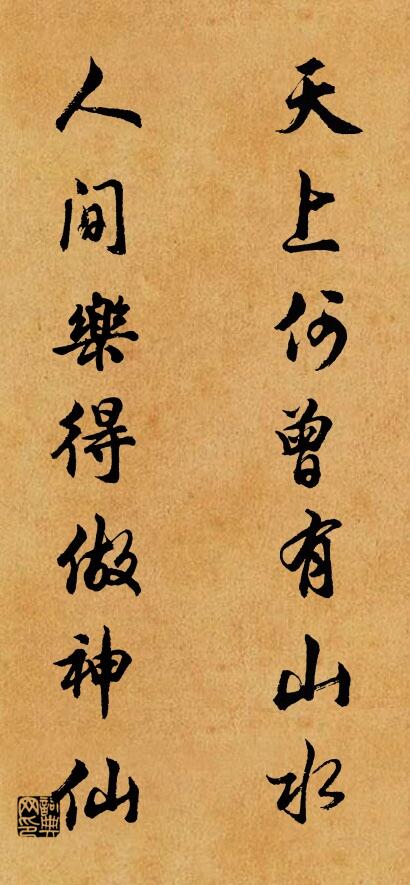 天上何曾有山水
人间樂得做神仙